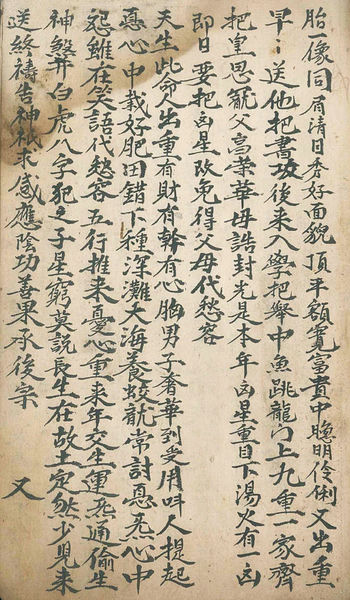 胎一像同眉清目秀好面貌頂平額寬富貴中聰明伶俐又出重
早送他把書攻後来入學把舉中魚跳龍门上九重一家齊
把皇恩寵父高荣華母誥封尤是本年凶星重目下湯火有一凶
即日要把凶星改免得父母代愁容
天生此命人出重有財有幹有心胸男子奢華到受用叫人提起
憂心中栽好肥田錯下種深灘大海養蛟龍常討憂𤇆心中
怨雖在笑語代愁容五行推来憂心重来年交生運不通偷生
神煞并白虎八字犯之子星窮莫說長生在故土定然少見来
送終禱告神祇求感應陰功善果承後宗 又